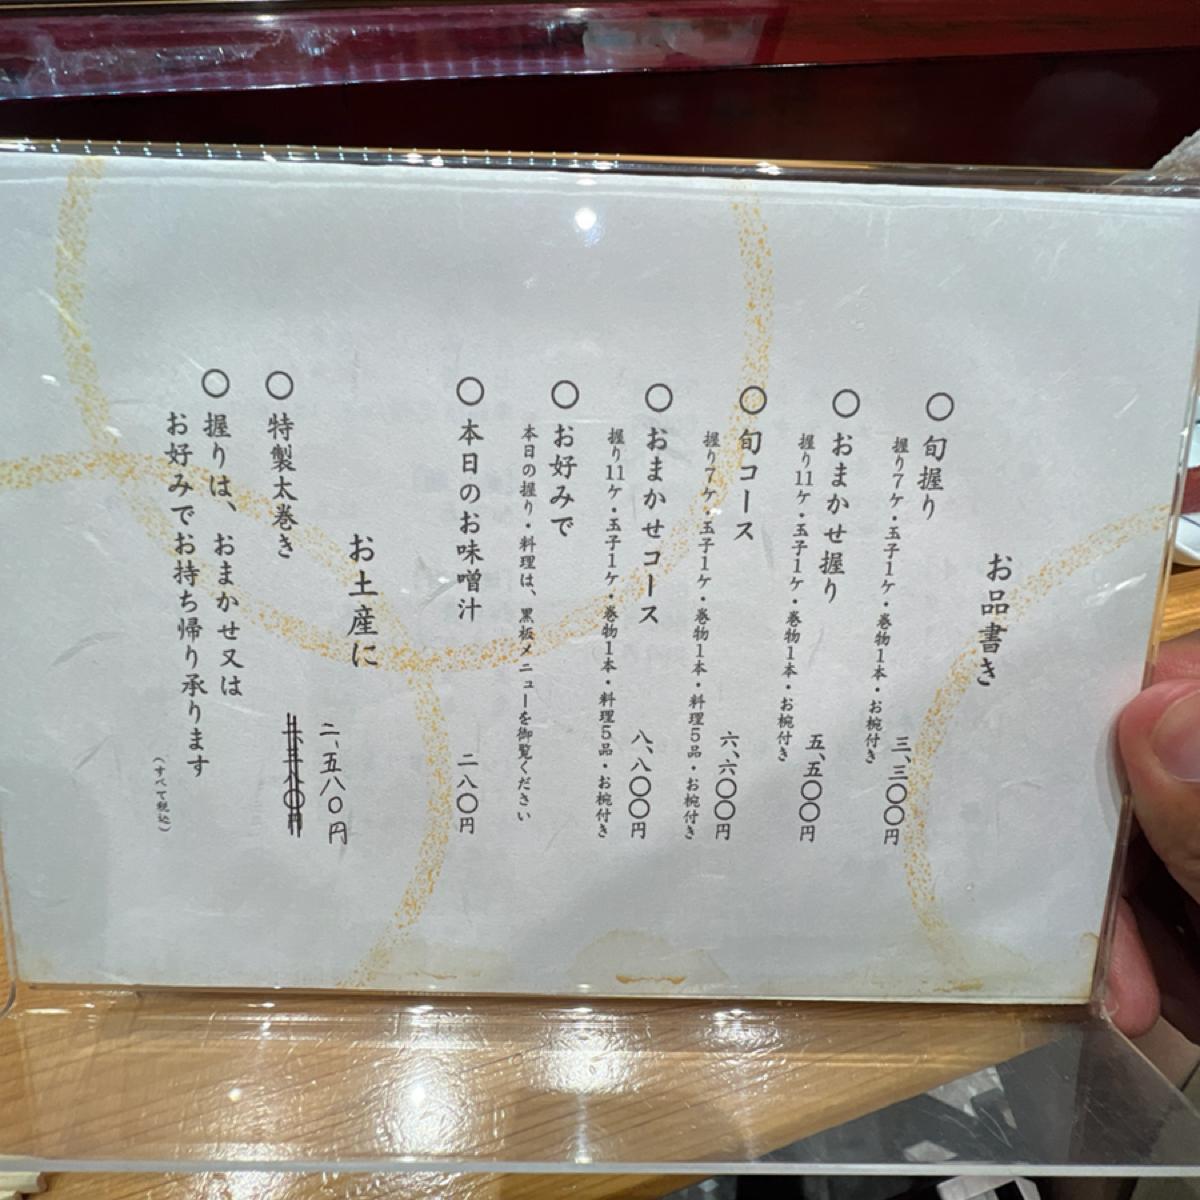 お品書き
○旬握り 三、三〇〇円
握り7ケ・玉子1ケ・巻物1本・お椀付き
○おまかせ握り 五、五〇〇円
握り11ケ・玉子1ケ・巻物1本・お椀付き
○旬コース 六、六〇〇円
握り7ケ・玉子1ケ・巻物1本・料理5品・お椀付き
○おまかせコース 八、八〇〇円
握り11ケ・玉子1ケ・巻物1本・料理5品・お椀付き
○お好みで
本日の握り・料理は、黒板メニューを御覧ください
○本日のお味噌汁 二八〇円
お土産に
二、五八〇円
○特製太巻き
○握りは、おまかせ又は
お好みでお持ち帰り承ります
（すべて税込）